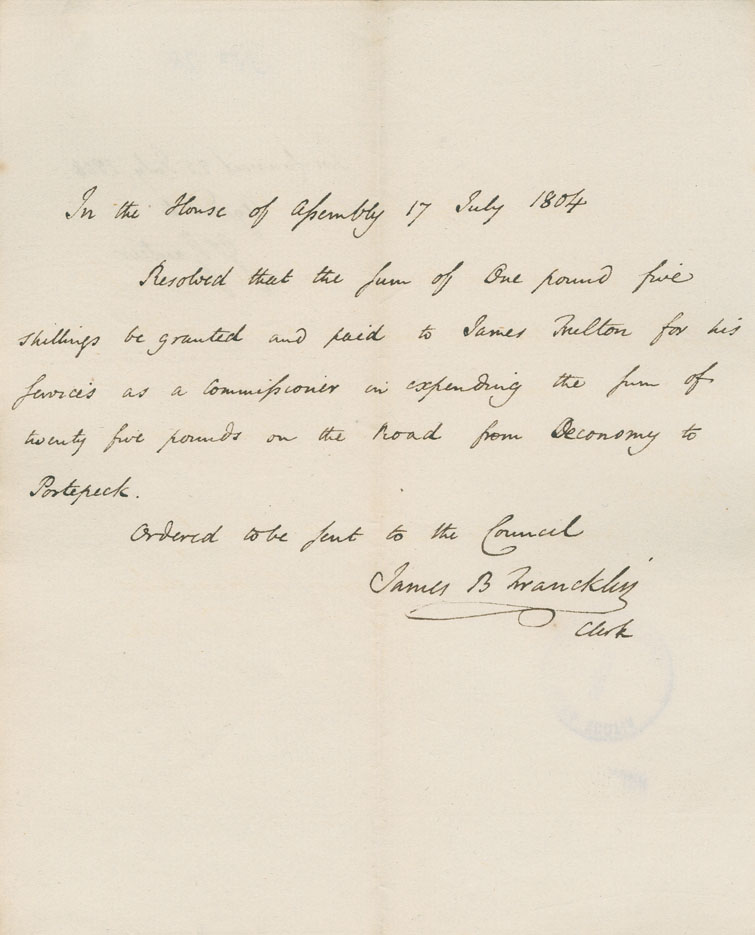 In the House of Assembly 17 July 1804
Resolved that the sum of One pound five
shillings be granted and paid to James Fulton for his
services as a Commissioner in expending the sum of
twenty five pounds on the Road from Oeconomy to
Portepeck.
Ordered to be sent to the Council
James B Francklin
Clerk